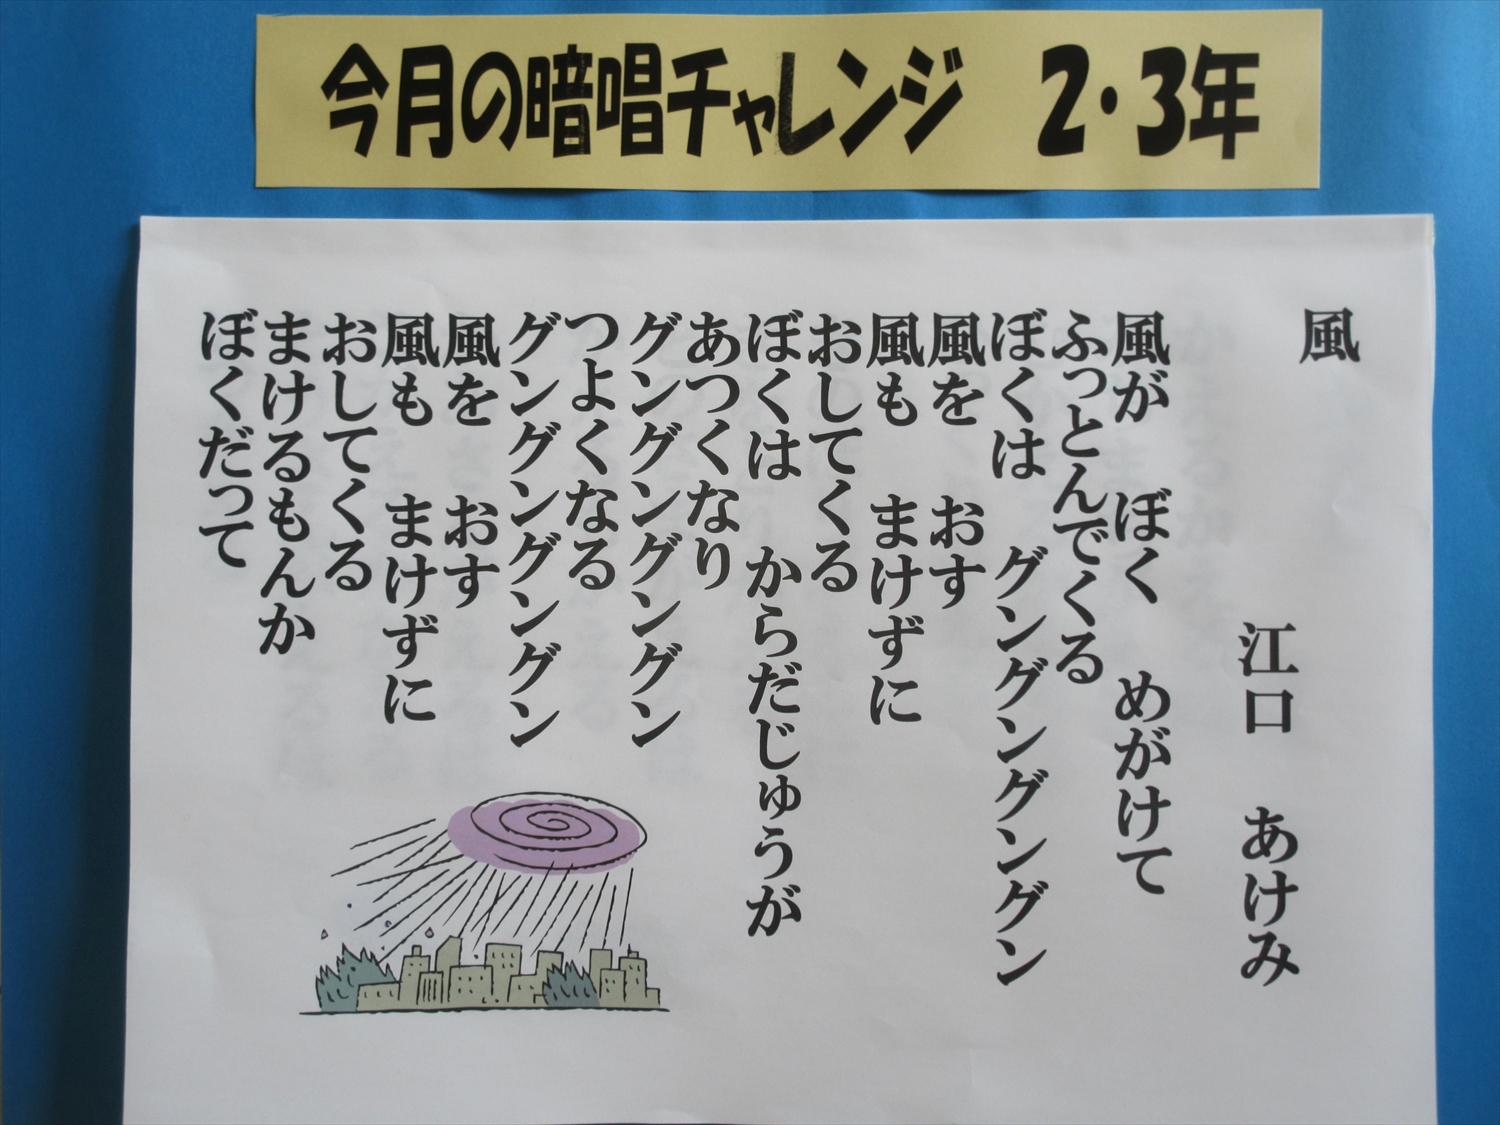 今月の暗唱チャレンジ　２・３年
風
江口　あけみ
風が　ぼく　めがけて
ふっとんでくる
ぼくは　グングングングン
風を　おす
風も　まけずに
おしてくる
ぼくは　からだじゅうが
あつくなり
グングングングン
つよくなる
グングングングン
風を　おす
風も　まけずに
おしてくる
まけるもんか
ぼくだって